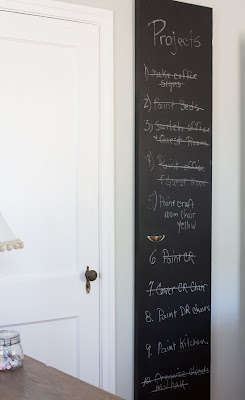 Projects
1) Make office
signs
2) Paint beds
3) Switch office
+ Guest Room
4) Paint office
+ Guest Room
5) Paint craft
room chair
yellow
6 Paint CR
7. Cover CR Chair
8. Paint DR chairs
9. Paint Kitchen
10 Organize